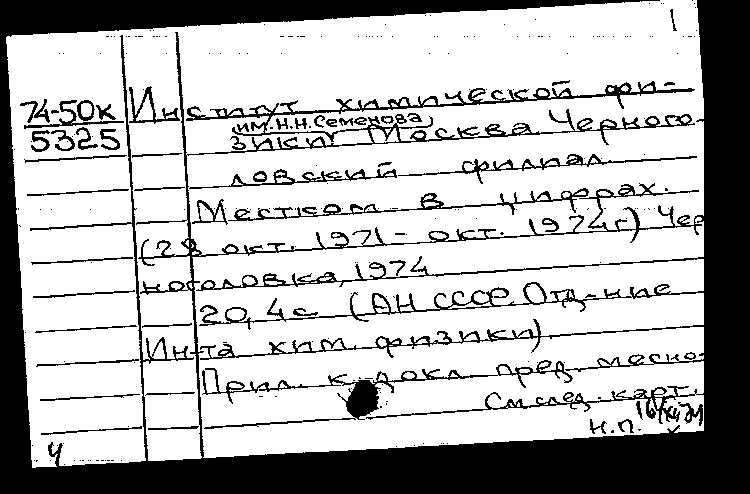 1
74-50к Институт химической фи-
5325 зики им. Н.Н. Семенова Москва Черного-
ловский филиал
Местком в цифрах.
(28 окт. 1971 - окт. 1974г) Чер
ноголовка, 1974
20, 4с (АН СССР. Отд-ние
Ин-та хим. физики).
Прил. к докл пред. месно-
См след. карт.
Н.П.
4